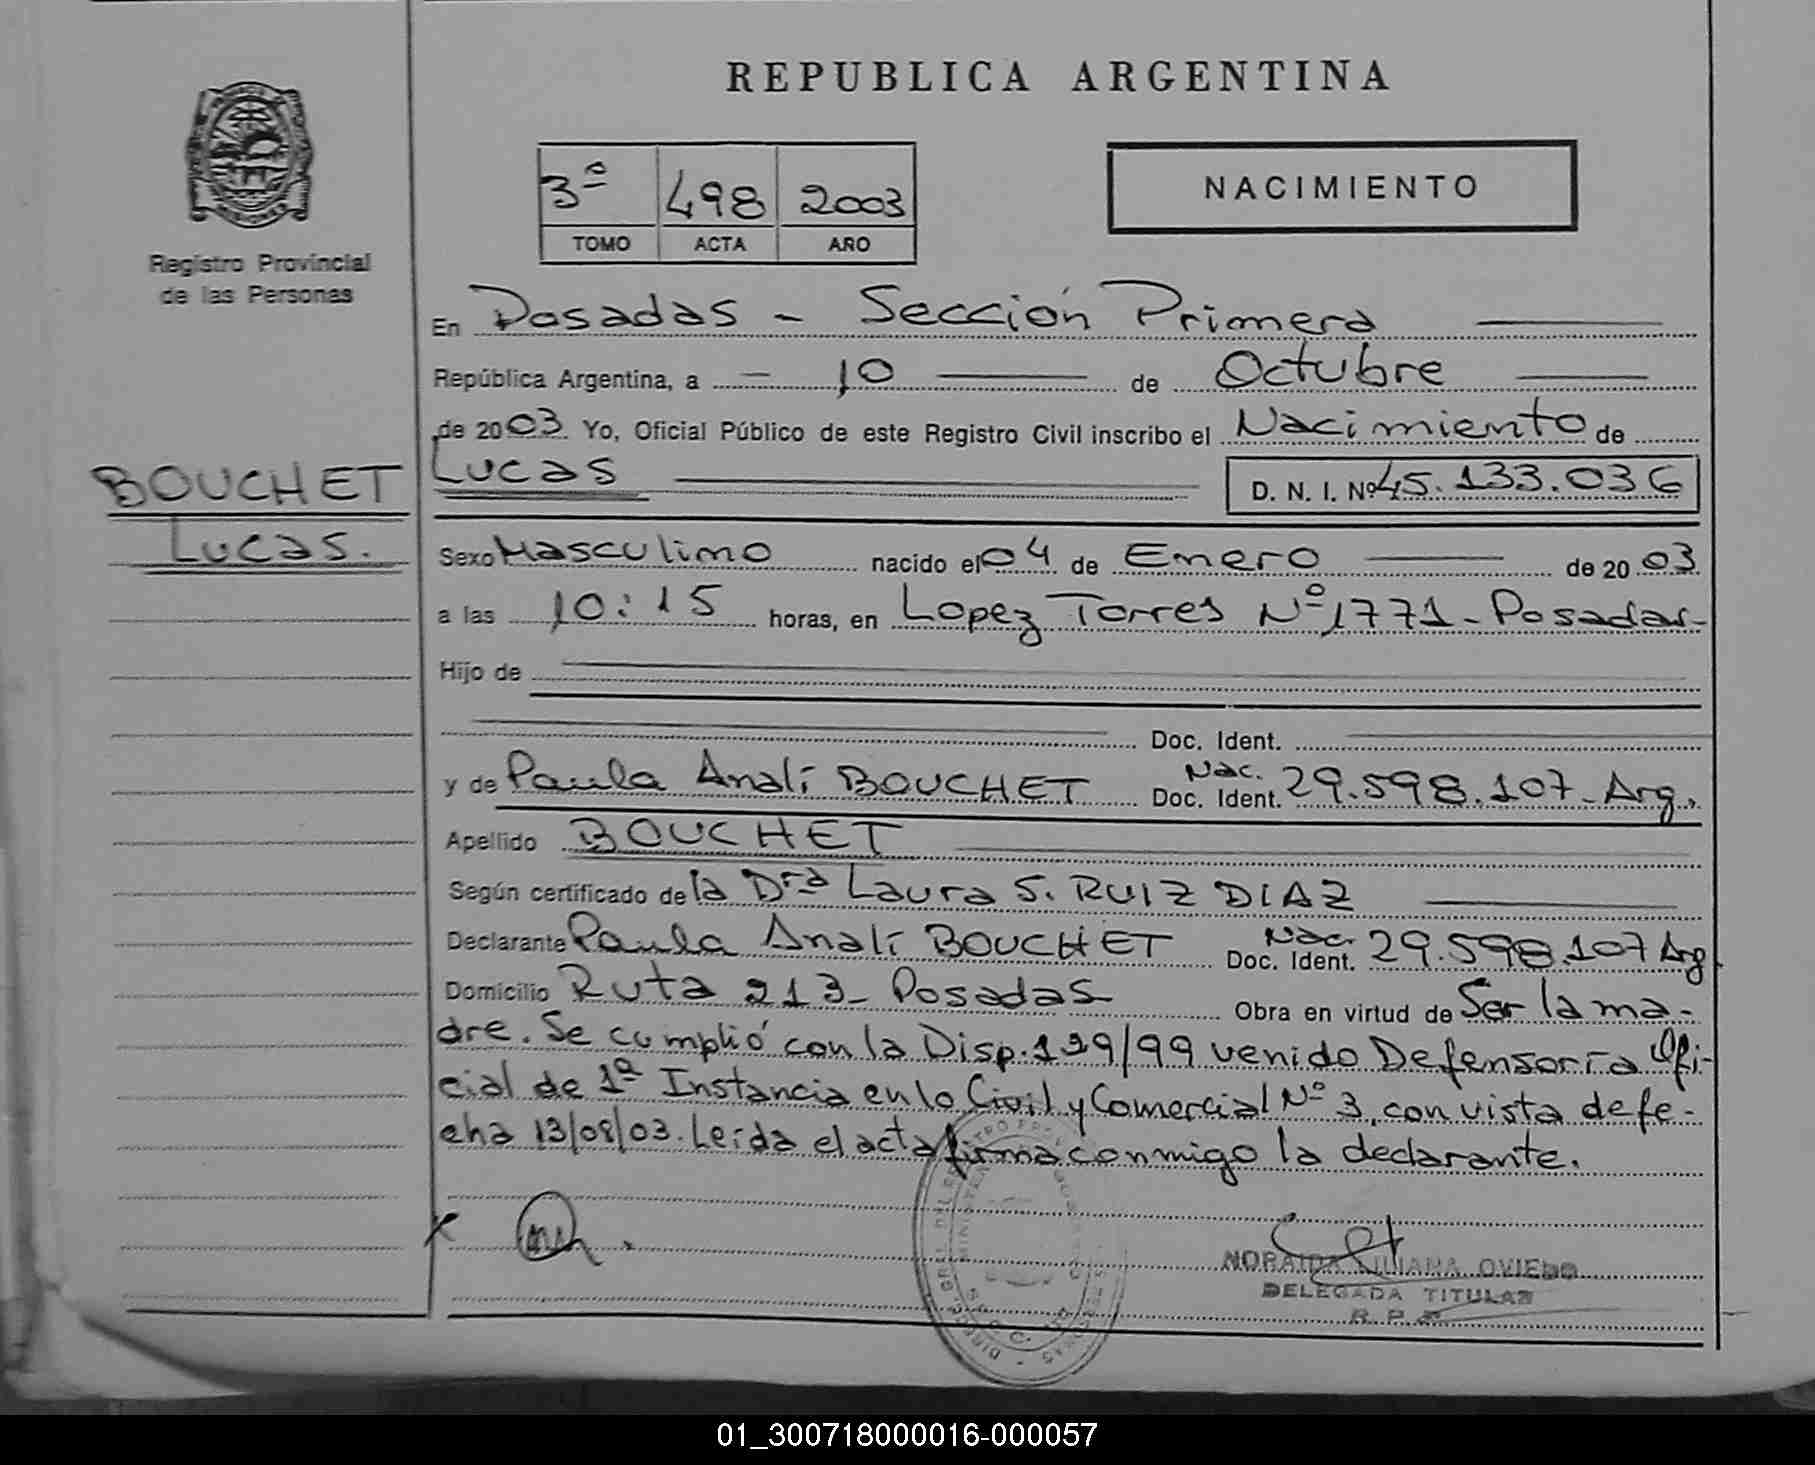 REPUBLICA ARGENTINA
3º 498 2003
TOMO ACTA AÑO
NACIMIENTO
Registro Provincial
de las Personas
En Posadas - Sección Primera
República Argentina, a - 10 de Octubre
de 2003 Yo, Oficial Público de este Registro Civil inscribo el Nacimiento de
Lucas D. N. I. Nº 45.133.036
BOUCHET
Lucas.
Sexo Masculino nacido el 04 de Enero de 2003
a las 10:15 horas, en Lopez Torres Nº 1771 - Posadas-
Hijo de
Doc. Ident.
y de Paula Analí BOUCHET Nac. Doc. Ident. 29.598.107 - Arg.
Apellido BOUCHET
Según certificado de la Dra Laura S. RUIZ DIAZ
Declarante Paula Analí BOUCHET Nac. Doc. Ident. 29.598.107 Arg
Domicilio Ruta 213 - Posadas Obra en virtud de Ser la ma-
dre. Se cumplió con la Disp. 129/99 venido Defensoría Ofi-
cial de 1ª Instancia en lo Civil y Comercial Nº 3, con vista de fe-
cha 13/08/03. Leída el acta firma conmigo la declarante.
NORAIDA LILIANA OVIEDO
DELEGADA TITULAR
R. P. P.
01_300718000016-000057